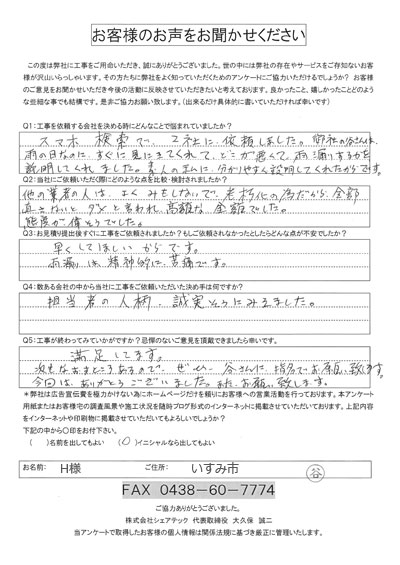 お客様のお声をお聞かせください
この度は弊社に工事をご用命いただき、誠にありがとうございました。世の中には弊社の存在やサービスをご存知ないお客
様が沢山いらっしゃいます。その方たちに弊社をよく知っていただくためのアンケートにご協力いただけるでしょうか？ お客様
のご意見をお聞かせいただき今後の活動に反映させていただきたいと考えております。良かったこと、嬉しかったことどのよう
な些細な事でも結構です。是非ご協力お願い致します。（出来るだけ具体的に書いていただければ幸いです）
Q1:工事を依頼する会社を決める時にどんなことで悩まれていましたか？
スマホ 検索で 2社に依頼しました。御社の谷さんは、
雨の日なのに、すぐに見にきてくれて、どこが悪くて、雨漏りするかを
説明してくれました。素人の私に、分かりやすく説明してくれたからです。
Q2:当社にご依頼いただく際にどのような点を比較・検討されましたか？
他の業者の人は、よくみもしないで、老朽化の為だから、全部
直さないとダメと言われ、高額な金額でした。
態度が、偉そうでした。
Q3:お見積り提出後すぐに工事をご依頼されましたか？もしご依頼されなかったとしたらどんな点が不安でしたか？
早くしてほしいからです。
雨漏は、精神的に、苦痛です。
Q4:数ある会社の中から当社に工事をご依頼いただいた決め手は何ですか？
担当者の人柄、誠実そうにみえました。
Q5:工事が終わってみていかがですか？忌憚のないご意見を頂戴できましたら幸いです。
満足してます。
次もなおすところあるので、ぜひ、谷さんに、指名でお願い致します。
今回は、ありがとうございました。お願い致します。
＊弊社は広告宣伝費を極力かけない為にホームページだけを頼りにお客様への営業活動を行っております。本アンケート
用紙またはお客様宅の調査風景や施工状況を随時ブログ形式のインターネットに掲載させていただいております。上記内容
をインターネットや印刷物に掲載させていただいてもよろしいでしょうか？
下記の中から〇印をお付下さい。
（ ）名前を出してもよい （〇）イニシャルなら出してもよい
お名前: H様 ご住所: いすみ市 谷
FAX 0438-60-7774
ご協力ありがとうございました。
株式会社シェアテック 代表取締役 大久保 誠二
当アンケートで取得したお客様の個人情報は関係法規に基づき厳正に管理いたします。